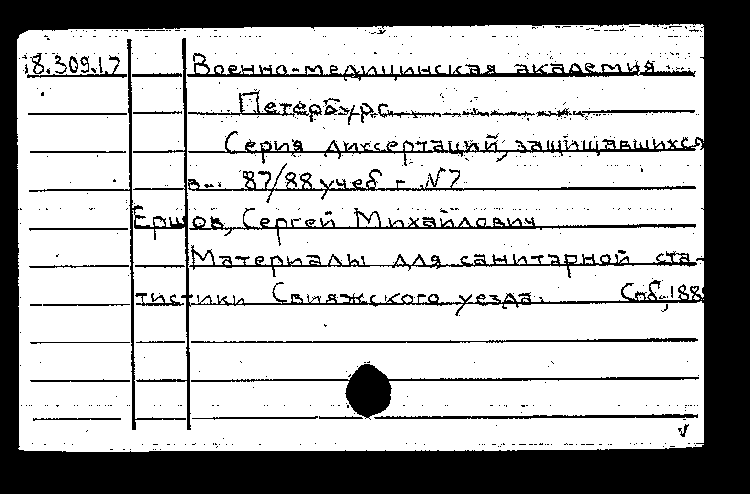 18.309.1.7 Военно-медицинская академия.
Петербург.
Серия диссертаций, защищавшихся
в... 87/88 учеб г. №7
Ершов, Сергей Михайлович.
Материалы для санитарной ста-
тистики Свияжского уезда. Спб., 188